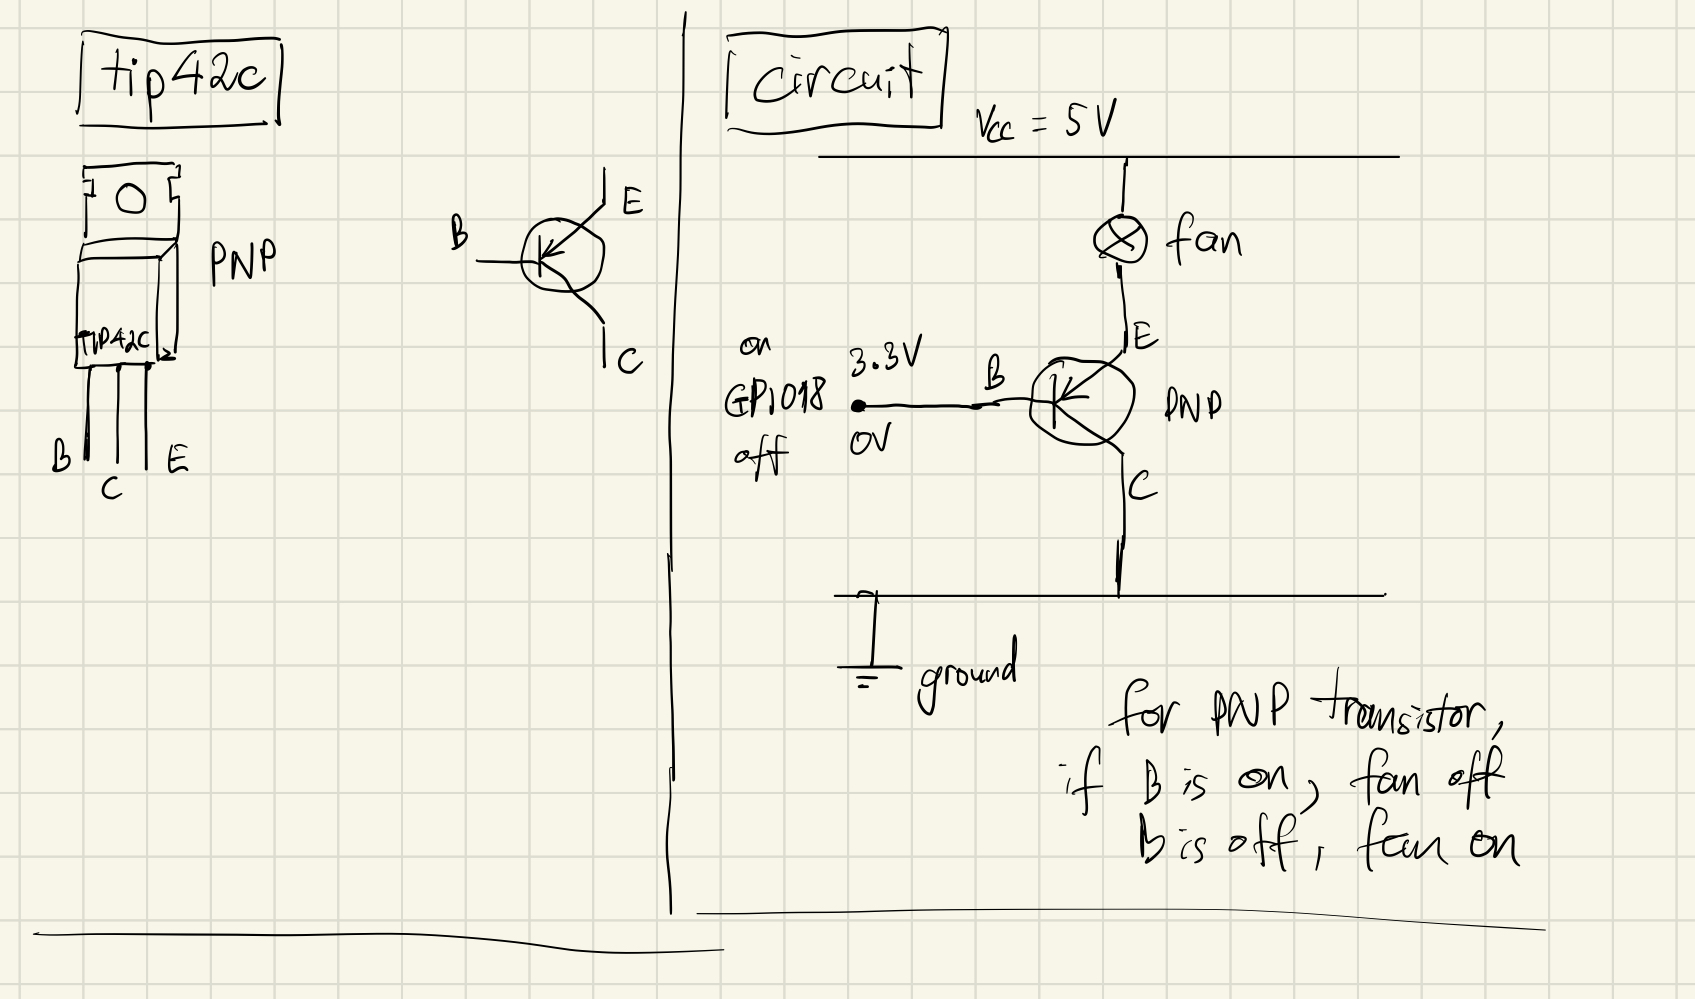 tip42c
PNP
TIP42C
B
C
E
B
E
C
circuit
Vcc = 5V
fan
E
on
3.3V
B
GPIO18
PNP
0V
off
C
ground
for PNP transistor,
if B is on, fan off
B is off, fan on